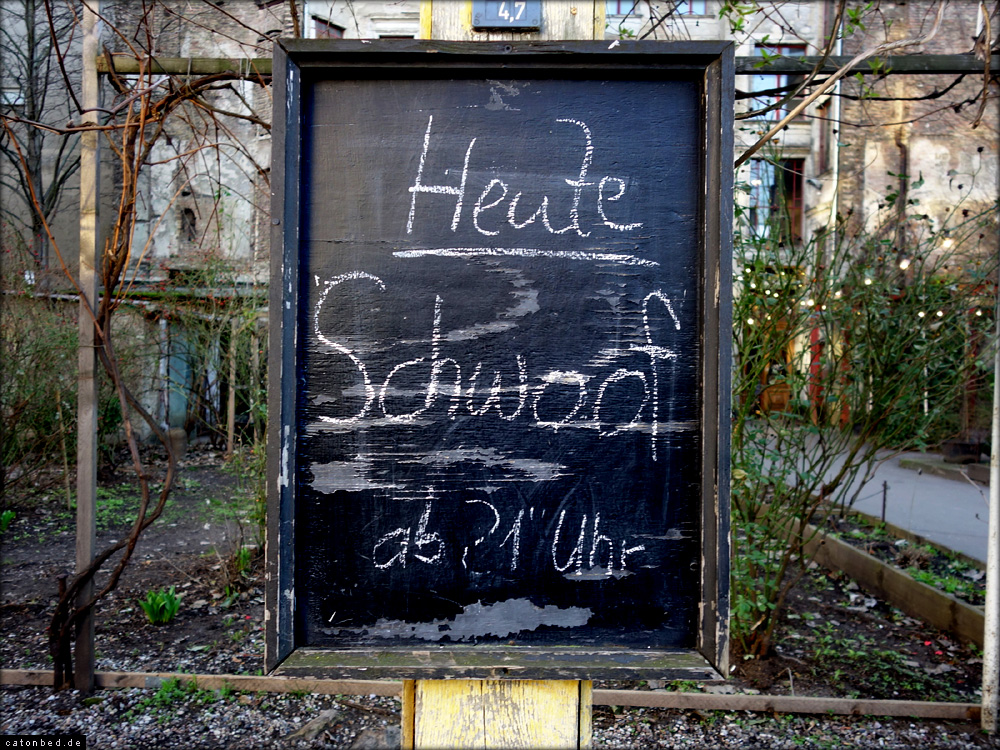 4,7
Heute
Schwoof
ab 21 Uhr
catonbed.de